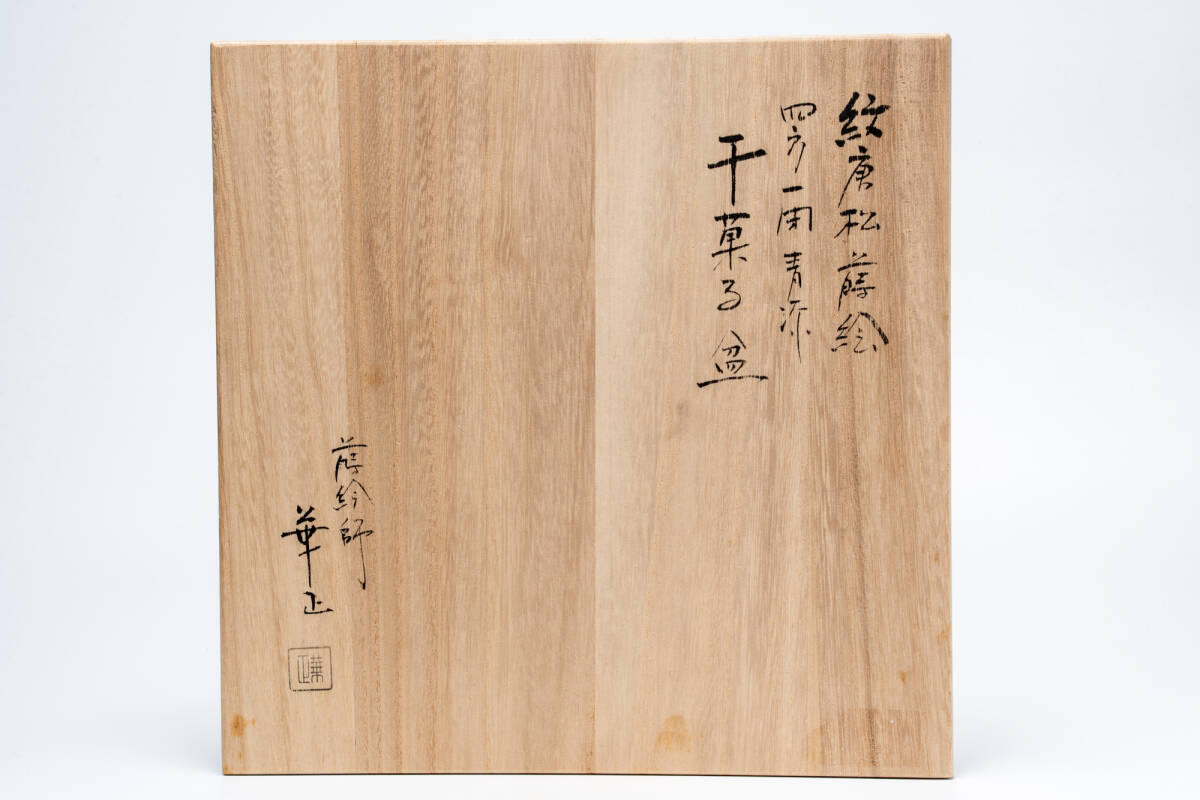 紋唐松蒔絵
四方一閑青漆
干菓子盆
蒔絵師
華正
華正